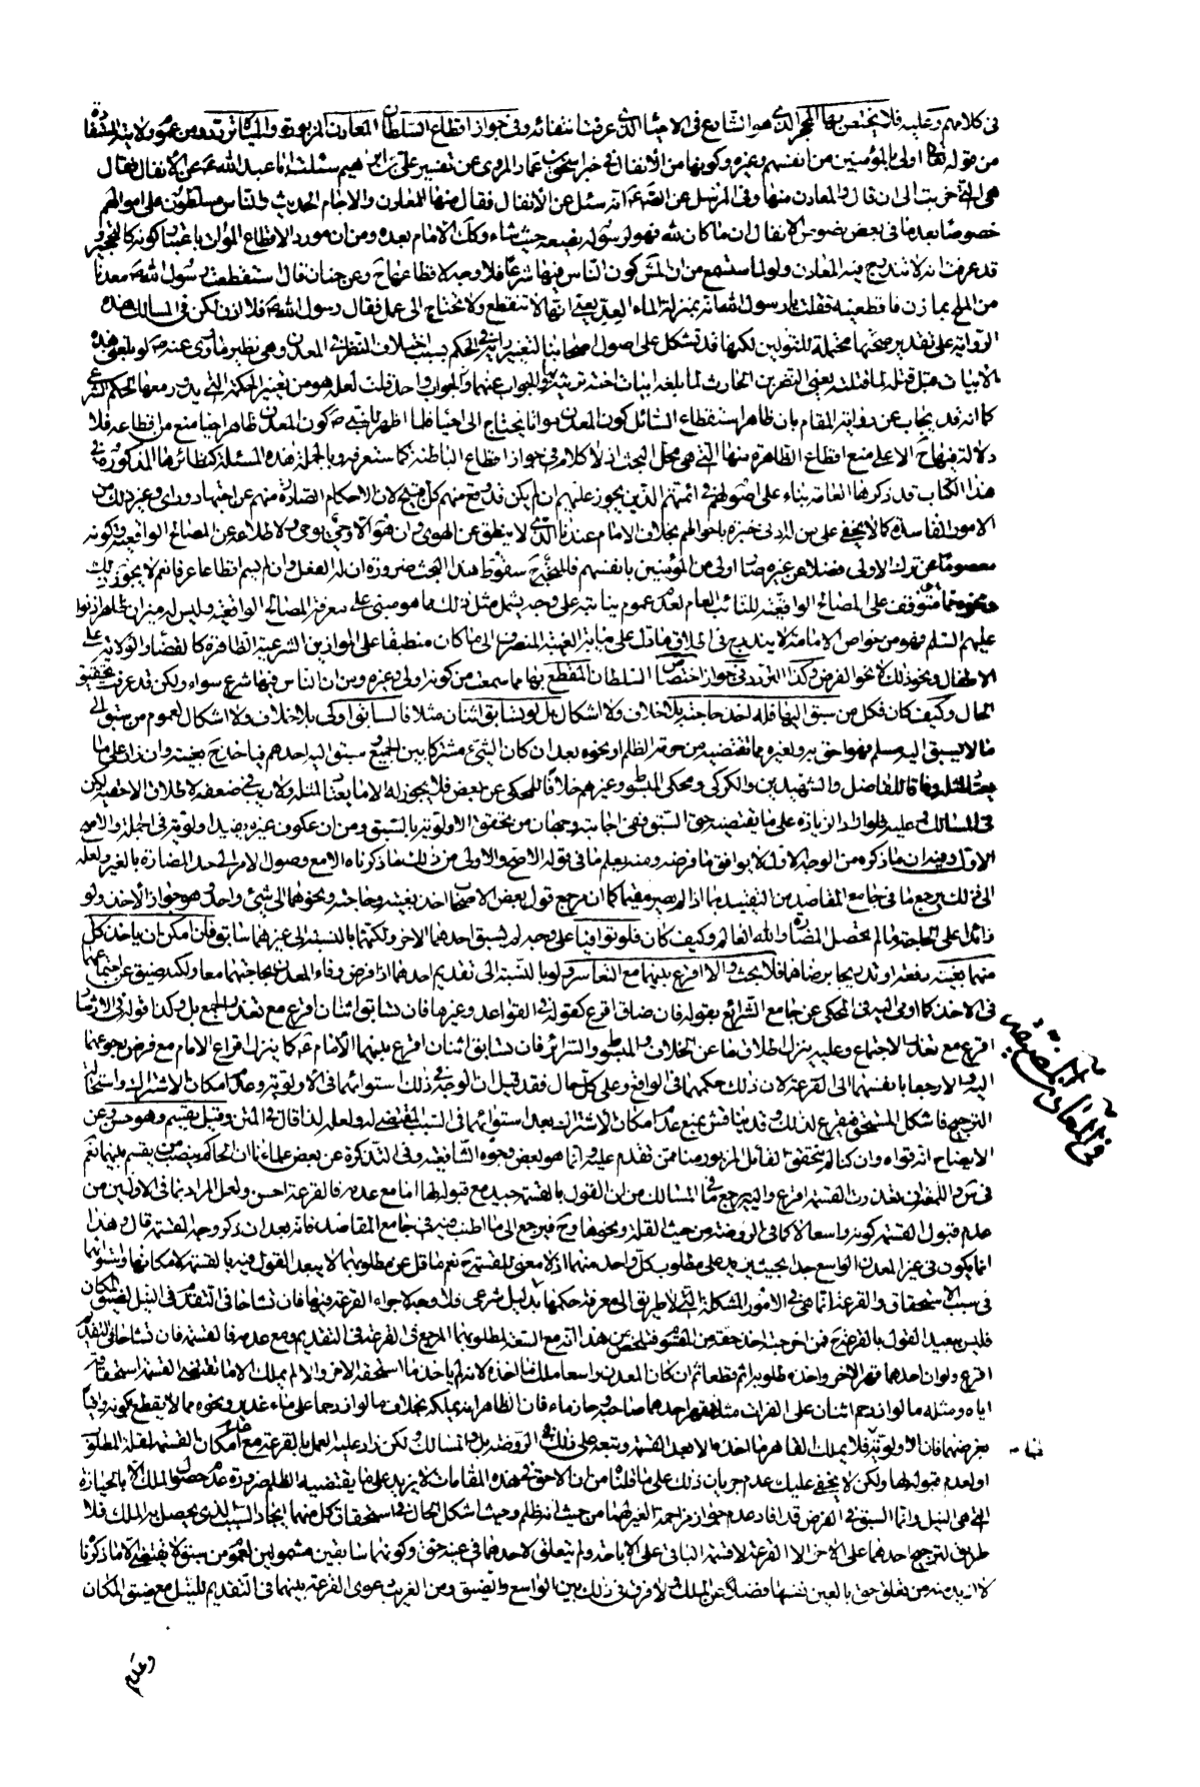 فى كلامهم وعليه فلا يختص بها المحجر الذى هو الشارع فى الاحياء الذى عرفت انتفائه وفى جواز اقطاع السلطان المعادن المزبورة والمياه تردد من عموم ولايته المستفادة
من قوله تعالى اولى بالمؤمنين من انفسهم وغيره وكونها من الانفال فى خبر اسحق بن عمار المروى عن تفسير على بن ابراهيم سئلت ابا عبد الله عن الانفال فقال
هى التى خربت الى ان قال والمعادن منها وفى المرسل عن الصادق انه سئل عن الانفال فقال منها المعادن والاجام الحديث والناس مسلطون على اموالهم
خصوصا بعد ما فى بعض نصوص الانفال ان ما كان لله فهو لرسوله يضعه حيث شاء وكك الامام بعده ومن ان مورد الاقطاع الموات باعتبار كونه كالتحجير و
قد عرفت انه لا تندرج فيه المعادن ولما ستسمع من ان المش كون الناس فيها شرعا فلا وجه لاقطاعها ح وعن حنان قال استقطعت رسول الله ص معدنا
من الملح بمازن فاقطعنيه فقلت يا رسول الله انه بمنزلة الماء العد يعنى انها لا تنقطع ولا تحتاج الى عمل فقال رسول الله ص فلا اذن لكن فى المسالك هذه
الرواية على تقدير صحتها محتملة للقولين لكنها قد تشكل على اصول اصحابنا لتغير رأيه فى الحكم بسبب اختلاف النظر فى المعدن وهى نظير ما روى عنه ص لو بلغنى هذه
الابيات قبل قتله لما قتلته يعنى النضر بن الحارث لما بلغه ابيات اخته ترثيه والجواب عنهما واحد قلت لعله هو من تغير الحكمة التى يدور معها الحكم الشرعى
كما انه قد يجاب عن رواية المقام بان ظاهر استقطاع السائل كون المعدن مواتا يحتاج الى احياء فلما اظهر له ص كون المعدن ظاهرا حيا منع من اقطاعه فلا
دلالة فيها ح الا على منع اقطاع الظاهرة منها التى هى محل البحث اذ لا كلام فى جواز اقطاع الباطنة كما ستعرفه وبالجملة هذه المسئلة كنظائرها المذكورة فى
هذا الكتاب قد ذكرها العامة بناء على اصولهم فى ائمتهم الذين يجوز عليهم ان لم يكن قد وقع منهم كل قبيح لان الاحكام الصادرة منهم عن اجتهاد وراى وغير ذلك من
الامور الفاسدة كما لا يخفى على من له ادنى خبرة باحوالهم بخلاف الامام عندنا الذى لا ينطق عن الهوى ان هو الا وحى يوحى لاطلاعه عن المصالح الواقعية وكونه
معصوما عن ترك الاولى فضلا عن غيره وصار اولى من المؤمنين بانفسهم فالمتجه ح سقوط هذا البحث ضرورة ان له الفعل وان لم يسم اقطاعا عرفا نعم لا يجوز ذلك
ونحوه مما يتوقف على المصالح الواقعية للنائب العام لعدم عموم نيابته على وجه يشمل مثل ذلك مما هو مبنى على معرفة المصالح الواقعية وليس له ميزان ظاهر اذ نوابه
عليهم السلم فهو من خواص الامامة لا يندرج فى اطلاق ما دل على نيابة الغيبة المنصرف الى ما كان منطبقا على الموازين الشرعية الظاهرة كالقضاء والولاية على
الاطفال ونحو ذلك لا نحو الفرض وكذا التردد فى جواز اختصاص السلطان المقطع بها مما سمعت من كونه اولى وغيره ومن ان الناس فيها شرع سواء ولكن قد عرفت تحقيق
الحال وكيف كان فكل من سبق اليها فله اخذ حاجته بلا خلاف ولا اشكال بل لو تسابق اثنان مثلا فالسابق اولى بلا خلاف ولا اشكال لعموم من سبق الى
ما لا يسبق اليه مسلم فهو احق به ولغيره مما تقتضيه من حرمة الظلم او نحوه بعد ان كان الشىء مشتركا بين الجميع وسبق اليه احدهم فياخذ ح بغيته وان زاد على ما
يعتاد لمثله وفاقا للفاضل والشهيدين والكركى ومحكى المبسوط وغيرهم خلافا للمحكى عن بعض فلا يجوز له الا ما يعتاد لمثله ولا ريب فى ضعفه لاطلاق الاحقية لكن
فى المسالك عليه فلو اراد الزيادة على ما يقتضيه حق السبق ففى اجابته وجهان من تحقق الاولوية بالسبق ومن ان عكوف غيره يفيد اولويته فى الجملة والاصح
الاول وفيه ان ما ذكره من الوجه الاول لا يوافق ما فرضه ومنه يعلم ما فى قوله الاصح والاولى من ذلك ما ذكرناه الا مع وصول الامر الى حد المضارة بالغير ولعله
الى ذلك يرجع ما فى جامع المقاصد من التقييد بما اذا لم يصر مقيما كما ان مرجع قول بعض الاصحاب اخذ بغيته وحاجته ونحوهما الى شىء واحد وهو جواز الاخذ ولو
زائدا على الحاجة ما لم يحصل المضارة والله العالم وكيف كان فلو توافيا على وجه لم يسبق احدهما الاخر ولكنهما بالنسبة الى غيرهما سابق فان امكن ان ياخذ كل
منهما بغيته دفعة او تدريجا برضاهما فلا بحث والا اقرع بينهما مع التعاسر ولو بالنسبة الى تقديم احدهما اذا فرض وفاء المعدن بحاجتهما معا ولكنه ضيق عن اجتماعهما
فى الاخذ كما اومى اليه فى المحكى عن جامع الشرائع بقوله فان ضاق اقرع كقوله فى القواعد وغيرها فان تسابق اثنان اقرع مع تعذر الجمع بل وكذا قوله فى الارشاد
اقرع مع تعذر الاجتماع وعليه ينزل اطلاق ما عن الخلاف والمبسوط والسرائر فان تسابق اثنان اقرع بينهما الامام ع كما ينزل اقراع الامام مع فرض رجوعهما
اليه والا رجعا بانفسهما الى القرعة لان ذلك حكمهما فى الواقع وعلى كل حال فقد قيل ان الوجه فى ذلك استوائهما فى الاولوية وعدم امكان الاشتراك واستحالة
الترجيح فاشكل المستحق فيقرع لذلك وقد يناقش بمنع عدم امكان الاشتراك بعد استوائهما فى السبب المقتضى له ولعله لذا قال فى المتن وقيل يقسم وهو حسن وعن
الايضاح انه قواه وان كنا لم نتحقق القائل المزبور منا ممن تقدم عليه وانما هو لبعض وجوه الشافعية وفى التذكرة عن بعض علمائنا ان الحاكم ينصب من يقسم بينهما نعم
فى س واللمعة ان تعذرت القسمة اقرع واليه يرجع ما فى المسالك من ان القول بالقسمة جيد مع قبولها اما مع عدمه فالقرعة احسن ولعل المراد بما فى الاولين من
عدم قبول القسمة كونه واسعا لا كما فى الروضة من حيث القلة ونحوها وح فيرجع الى ما اطنب فيه فى جامع المقاصد فانه بعد ان ذكر وجه القسمة قال وهذا
انما يكون فى غير المعدن الواسع جدا بحيث يزيد على مطلوب كل واحد منهما اذ لا معنى للقسمة ح نعم ما قل عن مطلوبهما لا يبعد القول فيه بالقسمة لامكانها واستوائهما
فى سبب الاستحقاق والقرعة انما هى فى الامور المشكلة التى لا طريق الى معرفة حكمها بدليل شرعى فلا وجه لاجراء القرعة فيها فان تشاحا فى التقدم فى النيل لضيق المكان
فليس ببعيد القول بالقرعة ح فمن اخرجته اخذ حقه من المقسوم فتلخص من هذا انه مع السعة لمطلوبهما المرجع فى القرعة فى التقديم ومع عدمه فالقسمة فان تشاحا فى التقدم
اقرع ولو ان احدهما قهر الاخر واخذ مطلوبه اثم قطعا ثم ان كان المعدن واسعا ملك ما اخذه لانه لم ياخذ ما استحقه الاخر والا لم يملك الا ما تقتضى القسمة استحقاقه
اياه ومثله ما لو ازدحم اثنان على الفرات مثلا فقهر احدهما صاحبه وحاز ماء فان الظاهر انه يملكه بخلاف ما لو ازدحما على ماء غدير ونحوه مما لا يقطع بكونه وافيا
بغرضهما فان الاولوية لهما فلا يملك القاهر ما اخذ ما لا بعد القسمة وتبعه على ذلك فى الروضة بل والمسالك ولكن زاد عليه العمل بالقرعة مع عدم امكان القسمة لقلة المطلوب
او لعدم قبوله لها ولكن لا يخفى عليك عدم جريان ذلك على ما قلناه من ان الاحق فى هذه المقامات لا يزيد على ما يقتضيه الظلم ضرورة عدم حصول الملك الا بالحيازة
التى هى النيل وانما السبق فى الفرض قد افاد عدم جواز مزاحمة الغير لهما من حيث انه ظلم وحيث اشكل الحال فى استحقاق كل منهما ايجاد السبب الذى يحصل به الملك فلا
طريق لترجيح احدهما على الاخر الا القرعة لا قسمة الباقى على الاباحة ولم يتعلق لاحدهما فى عينه حق وكونهما سابقين مشمولين لعموم من سبق لا يقتضى الا ما ذكرنا
لا ازيد منه من تعلق حق بالعين نفسها فضلا عن الملك ولا فرق فى ذلك بين الواسع والضيق ومن الغريب دعوى القرعة بينهما فى التقديم للنيل مع ضيق المكان
وعدم